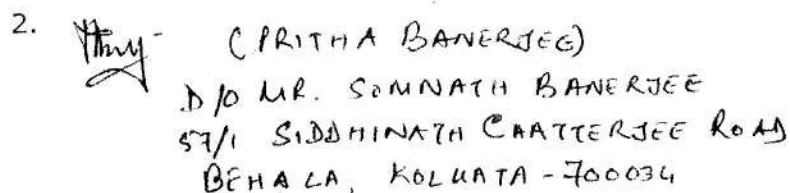 2. (PRITHA BANERJEE)
D/O MR. SOMNATH BANERJEE
57/1 SIDDHINATH CHATTERJEE ROAD
BEHALA, KOLKATA - 700034